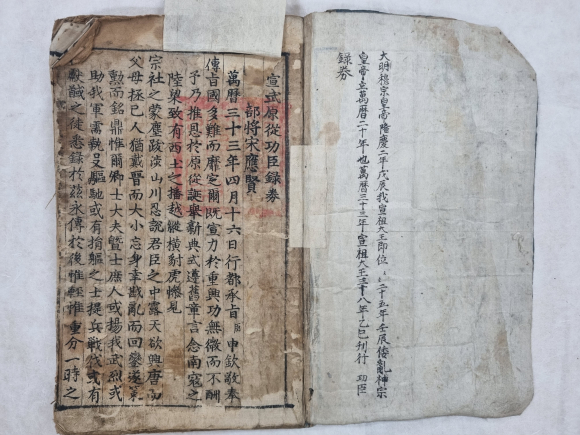 大明穆宗皇帝隆慶二年戊辰我宣祖大王即位 二十五年壬辰倭亂神宗
皇帝立萬曆二十年也萬曆三十三年宣祖大王三十八年乙巳刊行 功臣
錄券
宣武原從功臣錄券
部將宋應賢
萬曆三十三年四月十六日行都承旨臣申欽敬奉
傳旨國多難而靡定爾旣宣力於重興功無微而不酬
予乃推恩於原從誕舉新典式遵舊章言念南寇之
陸梁致有西土之播越縱橫豺虎慘見
宗社之蒙塵跋涉山川忍說君臣之中露天欲興唐而
父母拯已人猶戴晉而大小忘身幸戡亂而回鑾遂策
勳而銘鼎惟爾卿士大夫曁士庶人或揚我武烈或
助我軍需執殳驅馳或有捐軀之士提兵戰伐或有
獻馘之徒悉錄於茲永傳於後惟輕惟重分一時之